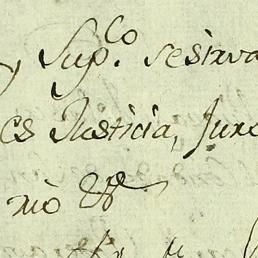 y Sup.co se sirva
es Justicia, Juro
nio &a